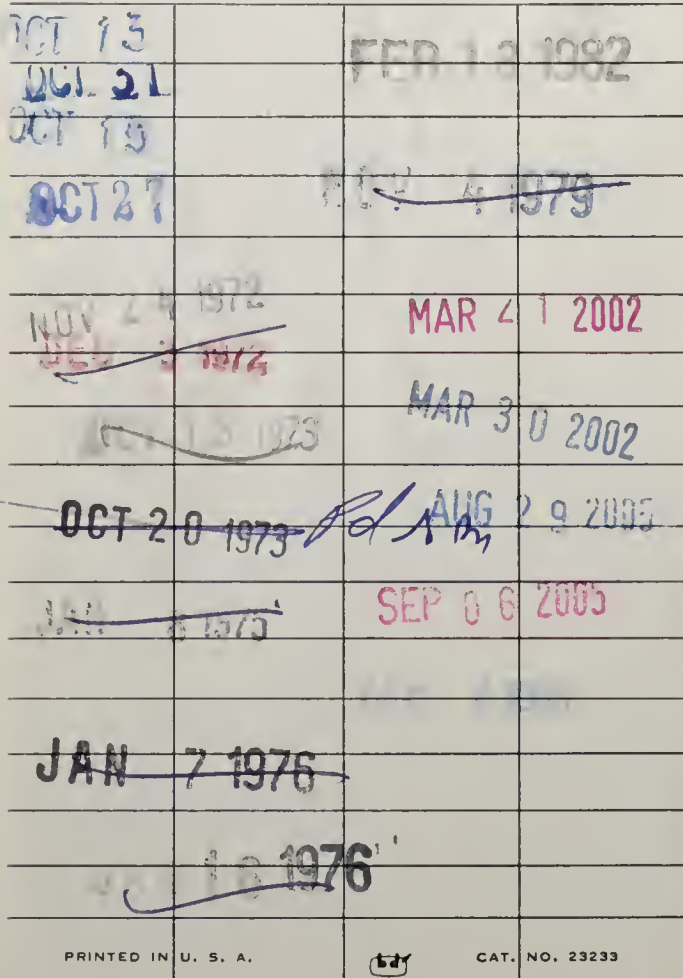 OCT 15
OCT 21
OCT 19
OCT 27
NOV 24 1972
DEC 1972
1973
OCT 20 1973
JAN 1975
JAN 7 1976
1976
FEB 18 1982
NOV 4 1979
MAR 1 2002
MAR 30 2002
Pd
AUG 29 2005
SEP 06 2005
PRINTED IN U. S. A.
bdr
CAT. NO. 23233